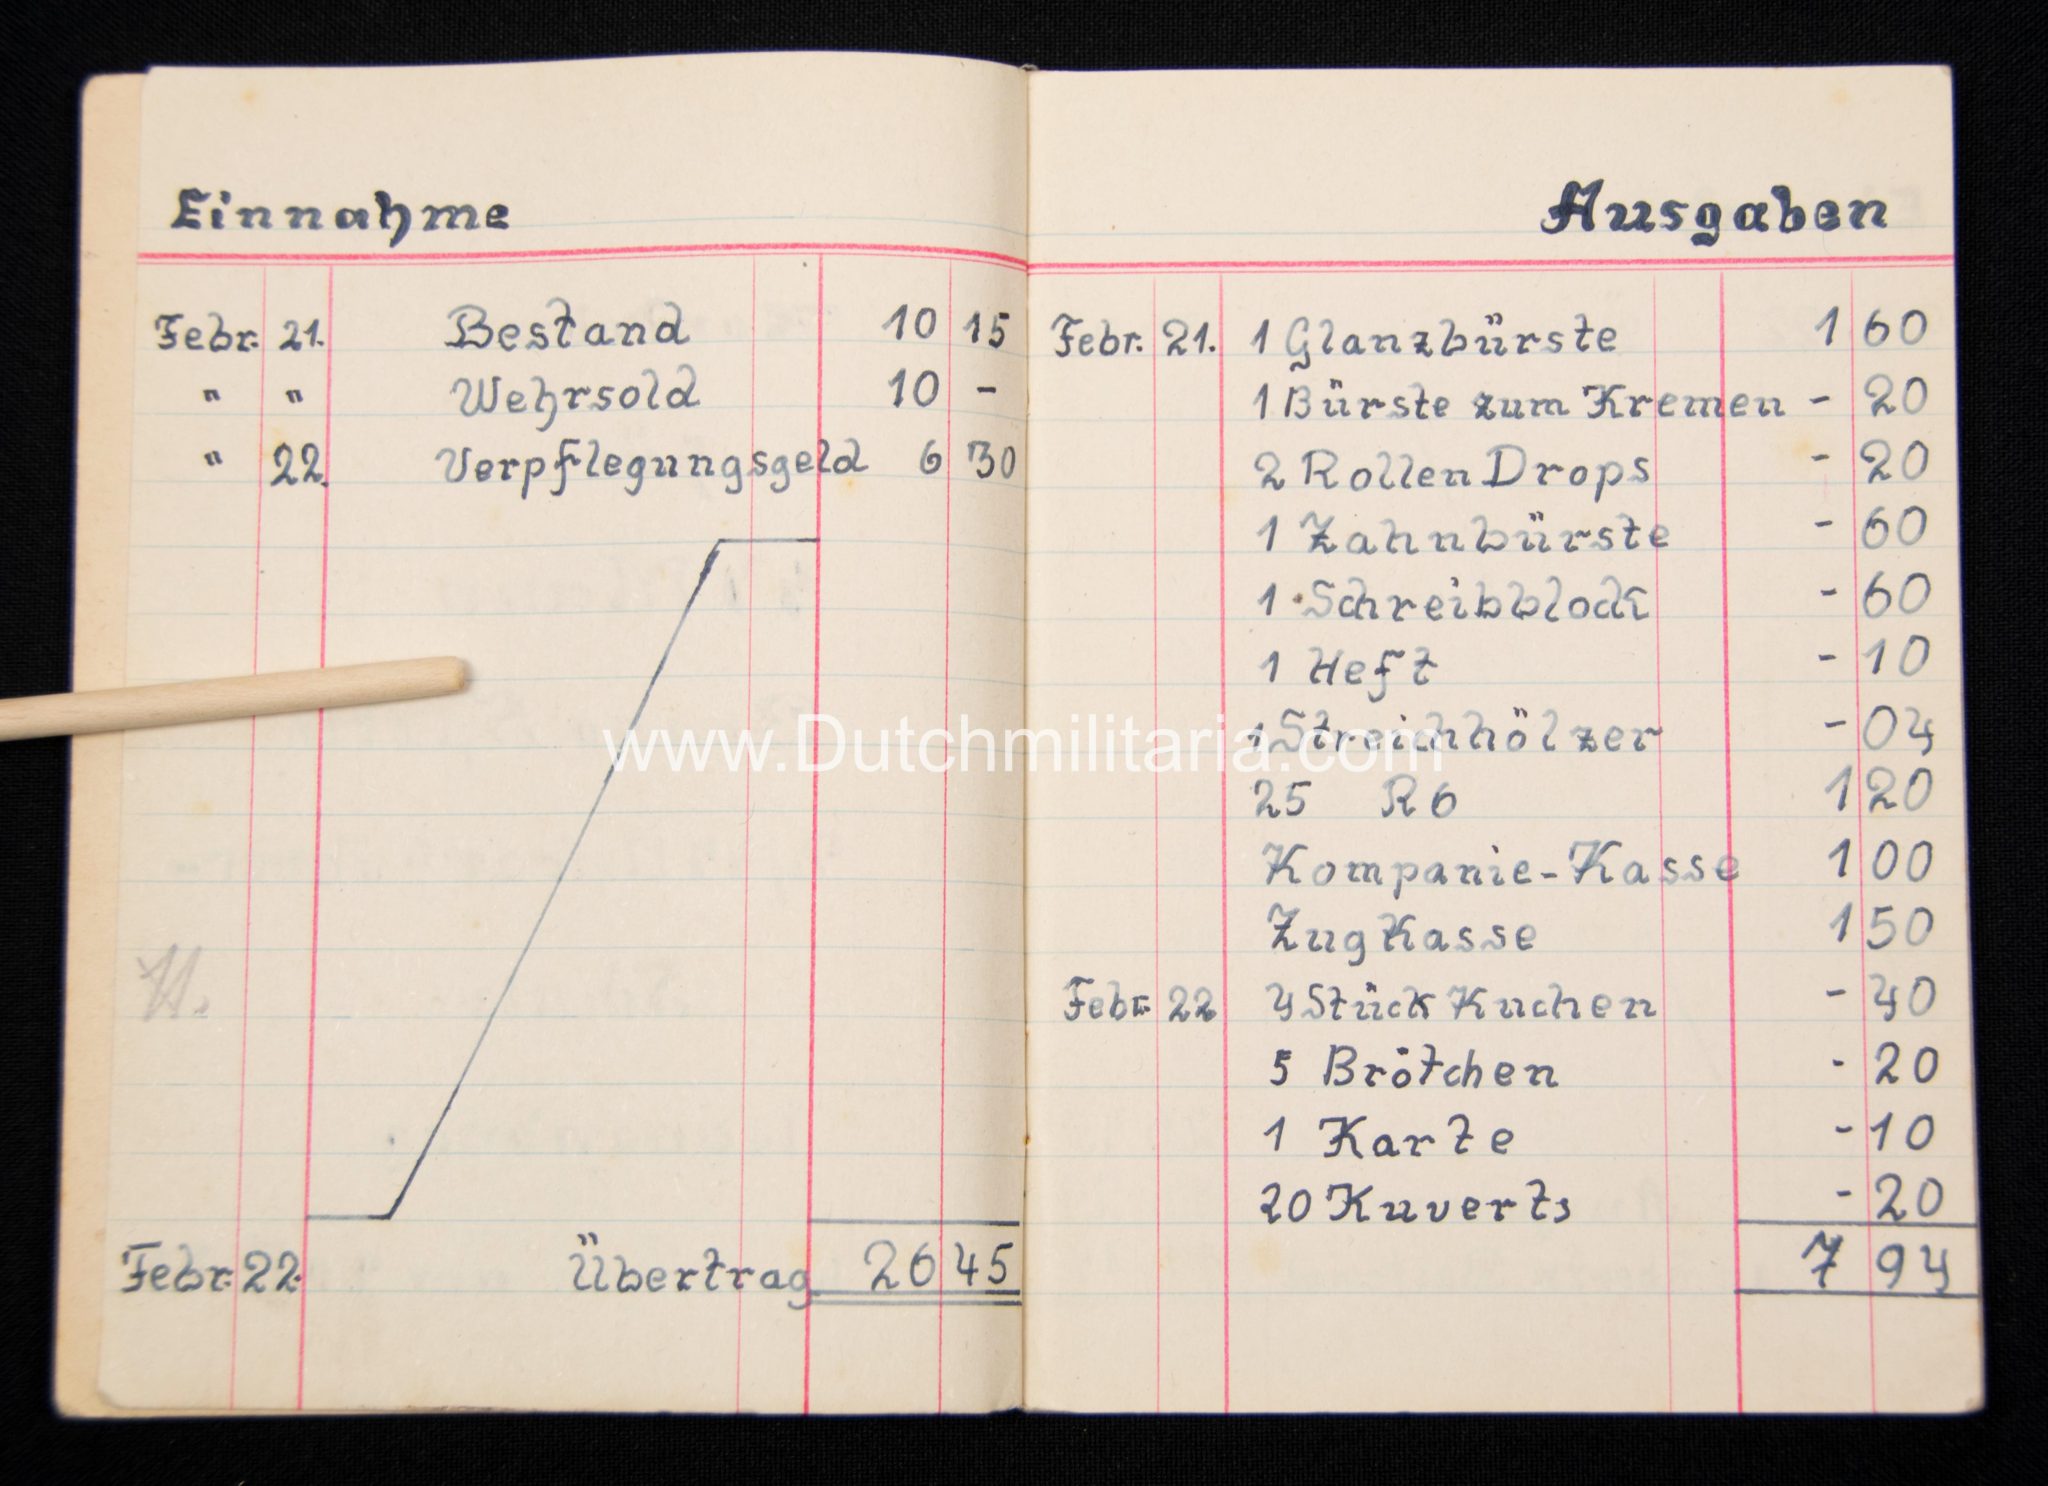 Einnahme
Febr. 21. Bestand 10 15
" " Wehrsold 10 -
" 22. Verpflegungsgeld 6 30
Febr. 22. Übertrag 26 45
Ausgaben
Febr. 21. 1 Glanzbürste 1 60
1 Bürste zum Kremen - 20
2 Rollen Drops - 20
1 Zahnbürste - 60
1 Schreibblock - 60
1 Heft - 10
1 Streichhölzer - 04
25 R6 1 20
Kompanie-Kasse 1 00
Zugkasse 1 50
Febr. 22 4 Stück Kuchen - 40
5 Brötchen - 20
1 Karte - 10
20 Kuverts - 20
7 94
www.Dutchmilitaria.com